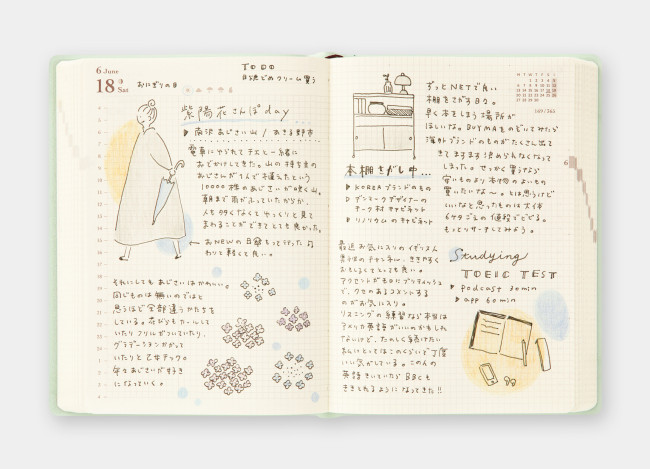 6 June
18 Sat
おにぎりの日
TODO
日焼どめクリーム買う
紫陽花さんぽday
南沢あじさい山 / あきる野市
電車にゆられてチエと一緒に
おでかけしてきた。山の持ち主の
おじさんがうえて増えたという
10000株のあじさいが咲く山。
朝まで雨がふっていたからか、
人も多くなくてゆっくりと見て
まわることができてとても良かった。
おNEWの日傘もって行った♪
わりと軽くて良い。
それにしてもあじさいはかわいい。
同じものは無いのではと
思うほど全部違うかたちを
している。花びらもカールして
いたりフリルがついていたり、
グラデーションかがって
いたりと乙女チック。
年々あじさいが好き
になっていく。
ずっとNETで良い
棚をさがす日々。
早く本をしまう場所が
ほしいな。BUYMAをのぞいてみたら
海外ブランドのものがたくさん出て
きてますます決められなくなって
しまった。せっかく買うなら
安いものより本物のよいもの
買いたいな〜。とは思うけど
いいなと思ったものは大体
もっとリサーチしてみよう。
169/365
6
本棚さがし中...
KOREAブランドのもの
デンマークデザイナーの
チーク材キャビネット
リノリウムのキャビネット
最近お気に入りのイギリス人
チャンネル、ききやすく
おもしろくてとっても良い。
アクセントがもろにブリティッシュ
で、クセのあるコメントする
のがお気に入り。
リスニングの練習なら本当は
アメリカ英語がいいのかもしれ
ないけど、たのしく続けたい
わたしにとってはこのくらいで丁度
いい気がしている。この人の
英語きいていたらBBCも
ききとれるようになってきた!!
Studying
TOEIC TEST
podcast 30min
app 60min